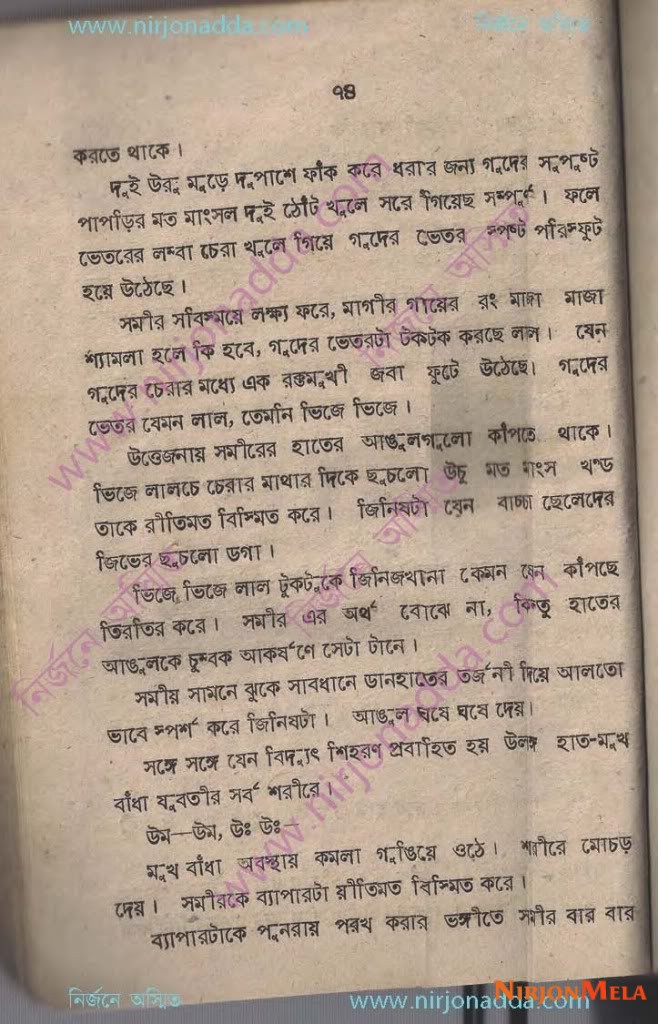 www.nirjonadda.com
নির্জনে অস্মিত
৭৪
করতে থাকে।
দুই উরু মুড়ে দুপাশে ফাঁক করে ধরার জন্য গুদের সুপুষ্ট
পাপড়ির মত মাংসল দুই ঠোঁট খুলে সরে গিয়েছে সম্পূর্ণ। ফলে
ভেতরের লম্বা চেরা খুলে গিয়ে গুদের ভেতর স্পষ্ট পরিস্ফুট
হয়ে উঠেছে।
সমীর সবিস্ময়ে লক্ষ্য করে, মাগীর গায়ের রং মাজা মাজা
শ্যামলা হলে কি হবে, গুদের ভেতরটা টকটক করছে লাল। যেন
গুদের চেরার মধ্যে এক রক্তমুখী জবা ফুটে উঠেছে। গুদের
ভেতর যেমন লাল, তেমনি ভিজে ভিজে।
উত্তেজনায় সমীরের হাতের আঙুলগুলো কাঁপতে থাকে।
ভিজে লালচে চেরার মাথার দিকে ছুচলো উচু মত মাংস খণ্ড
তাকে রীতিমত বিস্মিত করে। জিনিষটা যেন বাচ্চা ছেলেদের
জিভের ছুচলো ডগা।
ভিজে ভিজে লাল টুকটুকে জিনিজখানা কেমন যেন কাঁপছে
তিরতির করে। সমীর এর অর্থ বোঝে না, কিন্তু হাতের
আঙুলকে চুম্বক আকর্ষণে সেটা টানে।
সমীর সামনে ঝুকে সাবধানে ডানহাতের তর্জনী দিয়ে আলতো
ভাবে স্পর্শ করে জিনিষটা। আঙুল ঘষে ঘষে দেয়।
সঙ্গে সঙ্গে যেন বিদ্যুৎ শিহরণ প্রবাহিত হয় উলঙ্গ হাত-মুখ
বাঁধা যুবতীর সর্ব শরীরে।
উম—উম, উঃ উঃ—
মুখ বাঁধা অবস্থায় কমলা গুঙিয়ে ওঠে। শরীরে মোচড়
দেয়। সমীরকে ব্যাপারটা রীতিমত বিস্মিত করে।
ব্যাপারটাকে পুনরায় পরখ করার ভঙ্গীতে সমীর বার বার
www.nirjonadda.com
নির্জনে অস্মিত
নির্জনে অস্মিত
www.nirjonadda.com
নির্জনে অস্মিত
নির্জনে অস্মিত
www.nirjonadda.com
NIRJONMELA